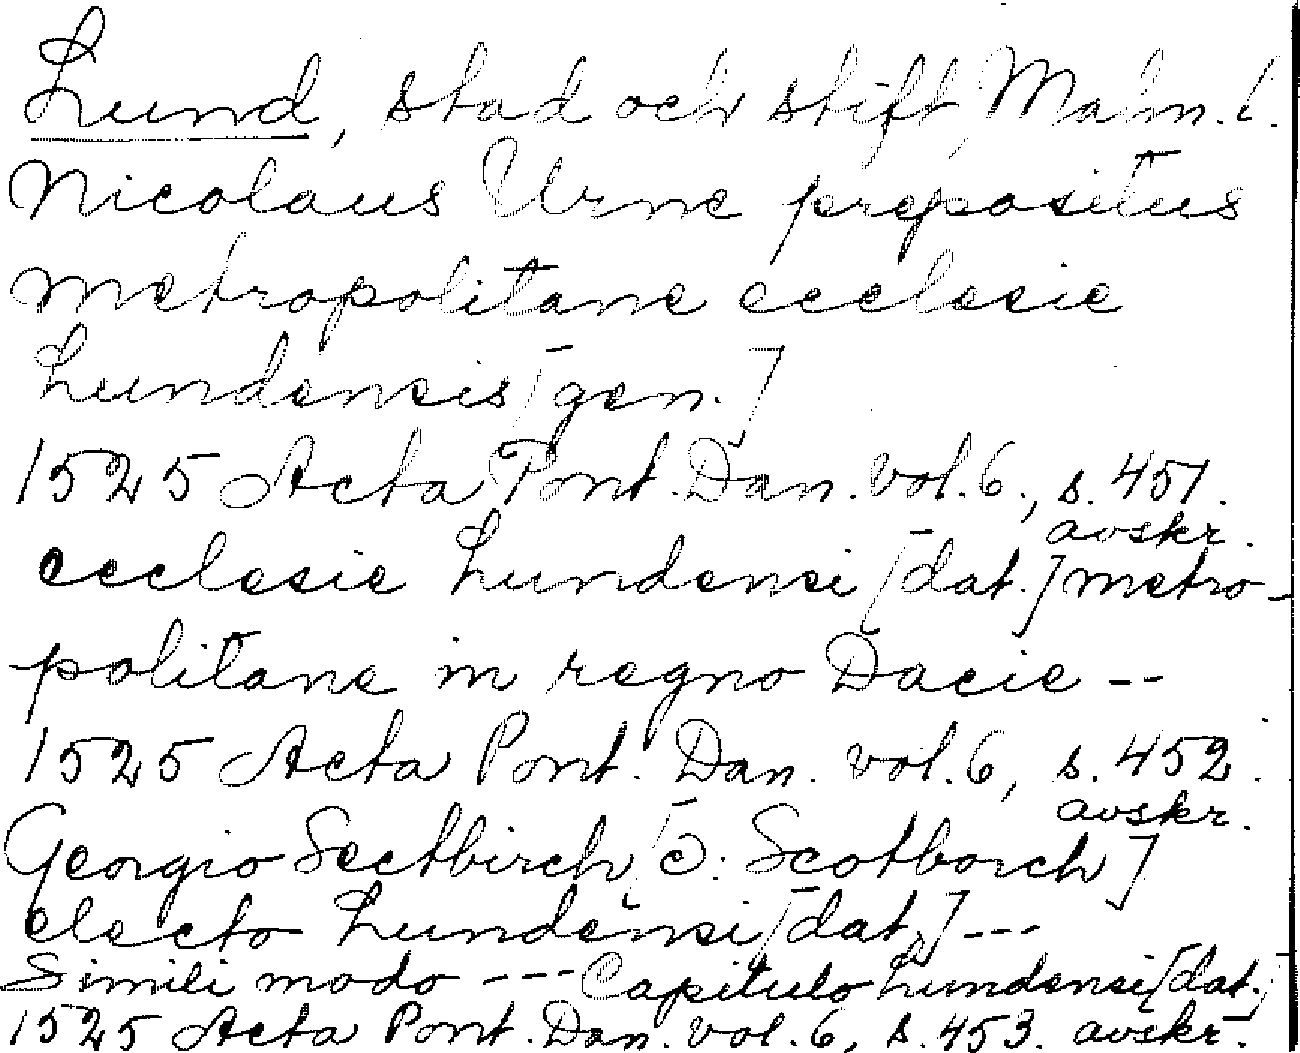 Lund, stad och stift, Malm. l.
Nicolaus Urne prepositus
metropolitane ecclesie
Lundensis [gen.]
1525 Acta Pont. Dan. vol. 6., s. 451.
avskr.
ecclesie Lundensi [dat.] metro-
politane in regno Dacie --
1525 Acta Pont. Dan. vol. 6, s. 452.
avskr.
Georgio Sectbirch [ɔ: Scotborch]
electo Lundensi [dat.] ---
Simili modo --- Capitulo Lundensi [dat.]
1525 Acta Pont. Dan. vol. 6, s. 453. avskr.